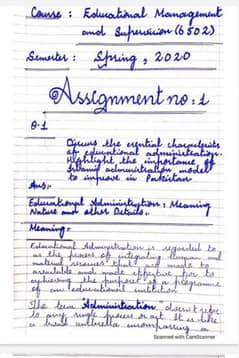 Course : Educational Management
and Supervision (6502)
Semester : Spring , 2020
Assignment no : 1
Q.1
Discuss the essential characteristics
of educational administration.
Highlight the importance of
Islamic administration model
to improve in Pakistan
Ans:-
Educational Administration : Meaning
Nature and other Details :-
Meaning:-
Educational Administration is regarded to
as the process of integrating human and
material resources that are made to
available and made effective for to
achieving the purposes of a programme
of an educational institution
The term Administration doesn't refer
to any single process or act. It is like
a broad umbrella encompassing a
Scanned with CamScanner